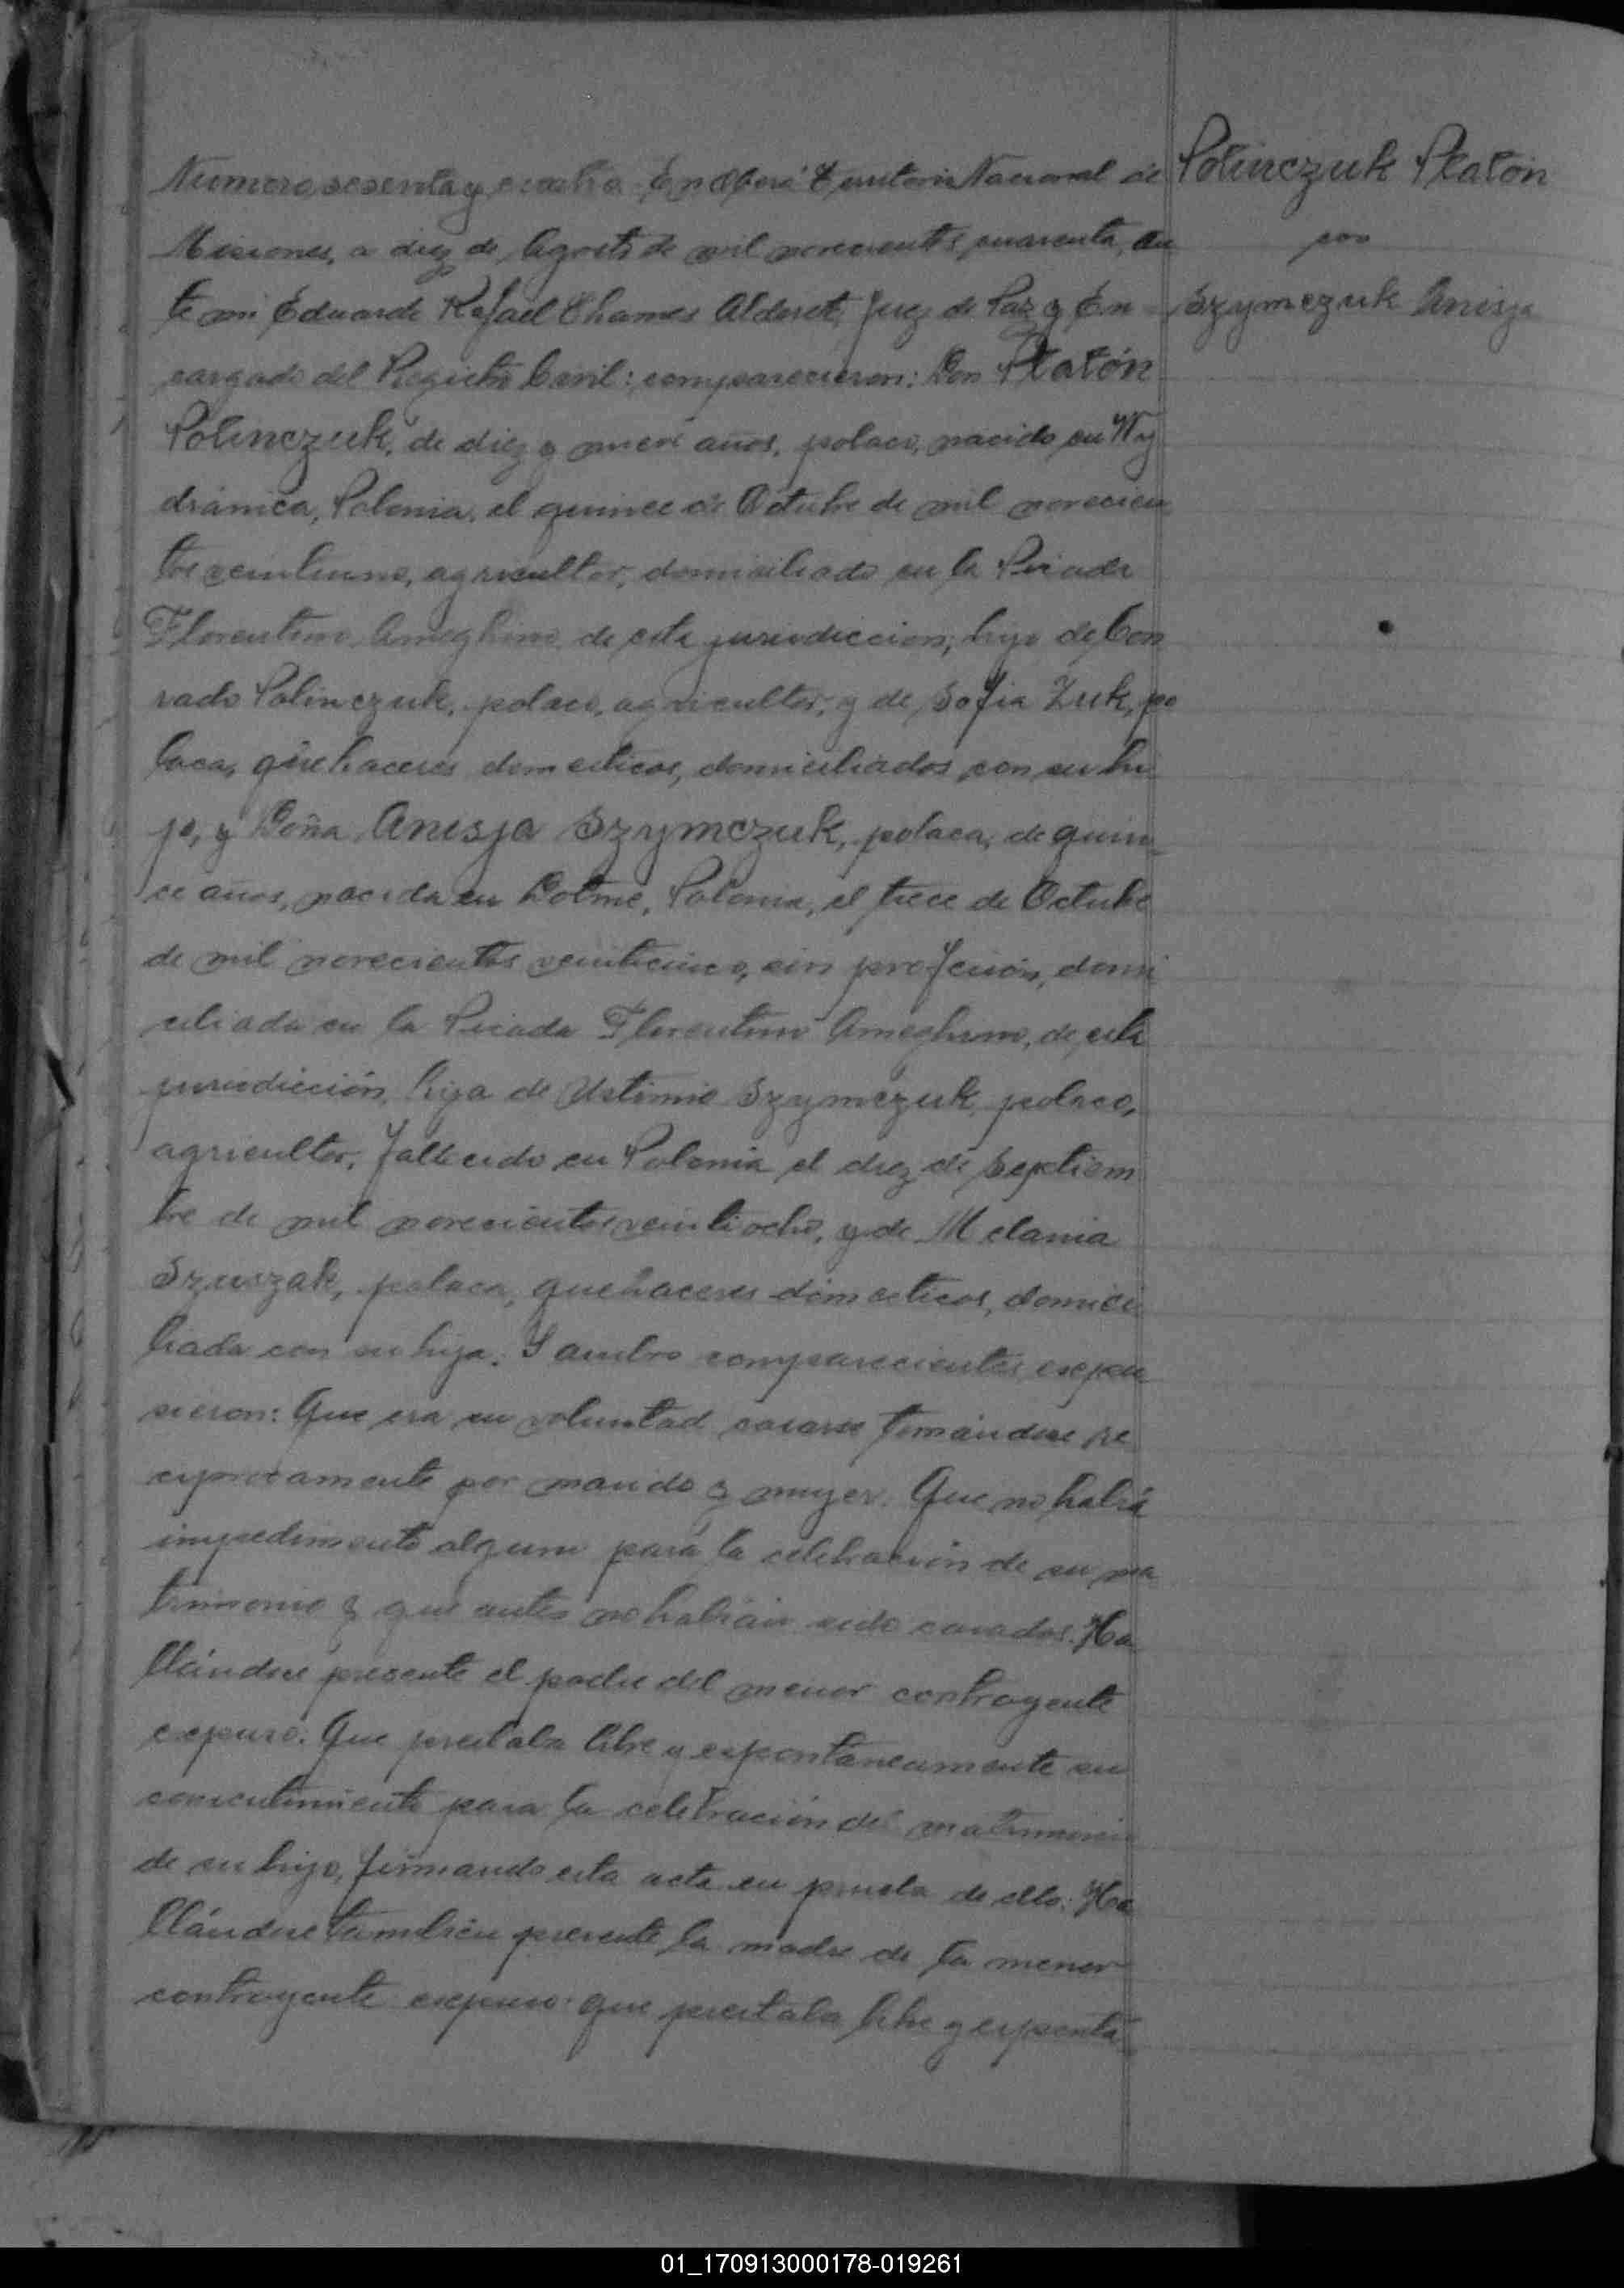 Numero sesenta y cuatro. En Oberá Territorio Nacional de
Misiones, a diez de Agosto de mil novecientos cuarenta, an
te mi Eduardo Rafael Chames Alderete, Juez de Paz y En-
cargado del Registro Civil: comparecieron: Don Platón
Polinczuk, de diez y nueve años, polaco, nacido en Wy
dránica, Polonia, el quince de Octubre de mil novecien
tos veintiuno, agricultor, domiciliado en la Picada
Florentino Ameghino de esta jurisdiccion; hijo de Con
rado Polinczuk, polaco, agricultor, y de Sofia Zuk, po
laca, quehaceres domesticos, domiciliados con su hi
jo, y Doña Anisja Szymczuk, polaca, de quin-
ce años, nacida en Dolme, Polonia, el trece de Octubre
de mil novecientos veinticinco, sin profesión, domi
ciliada en la Picada Florentino Ameghino, de esta
jurisdicción, hija de Ustimio Szymczuk, polaco,
agricultor, fallecido en Polonia el diez de Septiem
bre de mil novecientos veintiocho, y de Melania
Szuszak, polaca, quehaceres domesticos, domici
liada con su hija. Y ambos comparecientes expu
sieron: Que era su voluntad casarse tomándose re
ciprocamente por marido y mujer. Que no había
impedimento alguno para la celebración de su ma
trimonio y que antes no habían sido casados. Ha
llándose presente el padre del menor contrayente
expuso: Que prestaba libre y espontáneamente su
consentimiento para la celebración del matrimonio
de su hijo, firmando esta acta en prueba de ello. Ha
llándose también presente la madre de la menor
contrayente expuso: que prestaba libre y espontá-
Polinczuk Platón
con
Szymczuk Anisja
01_170913000178-019261